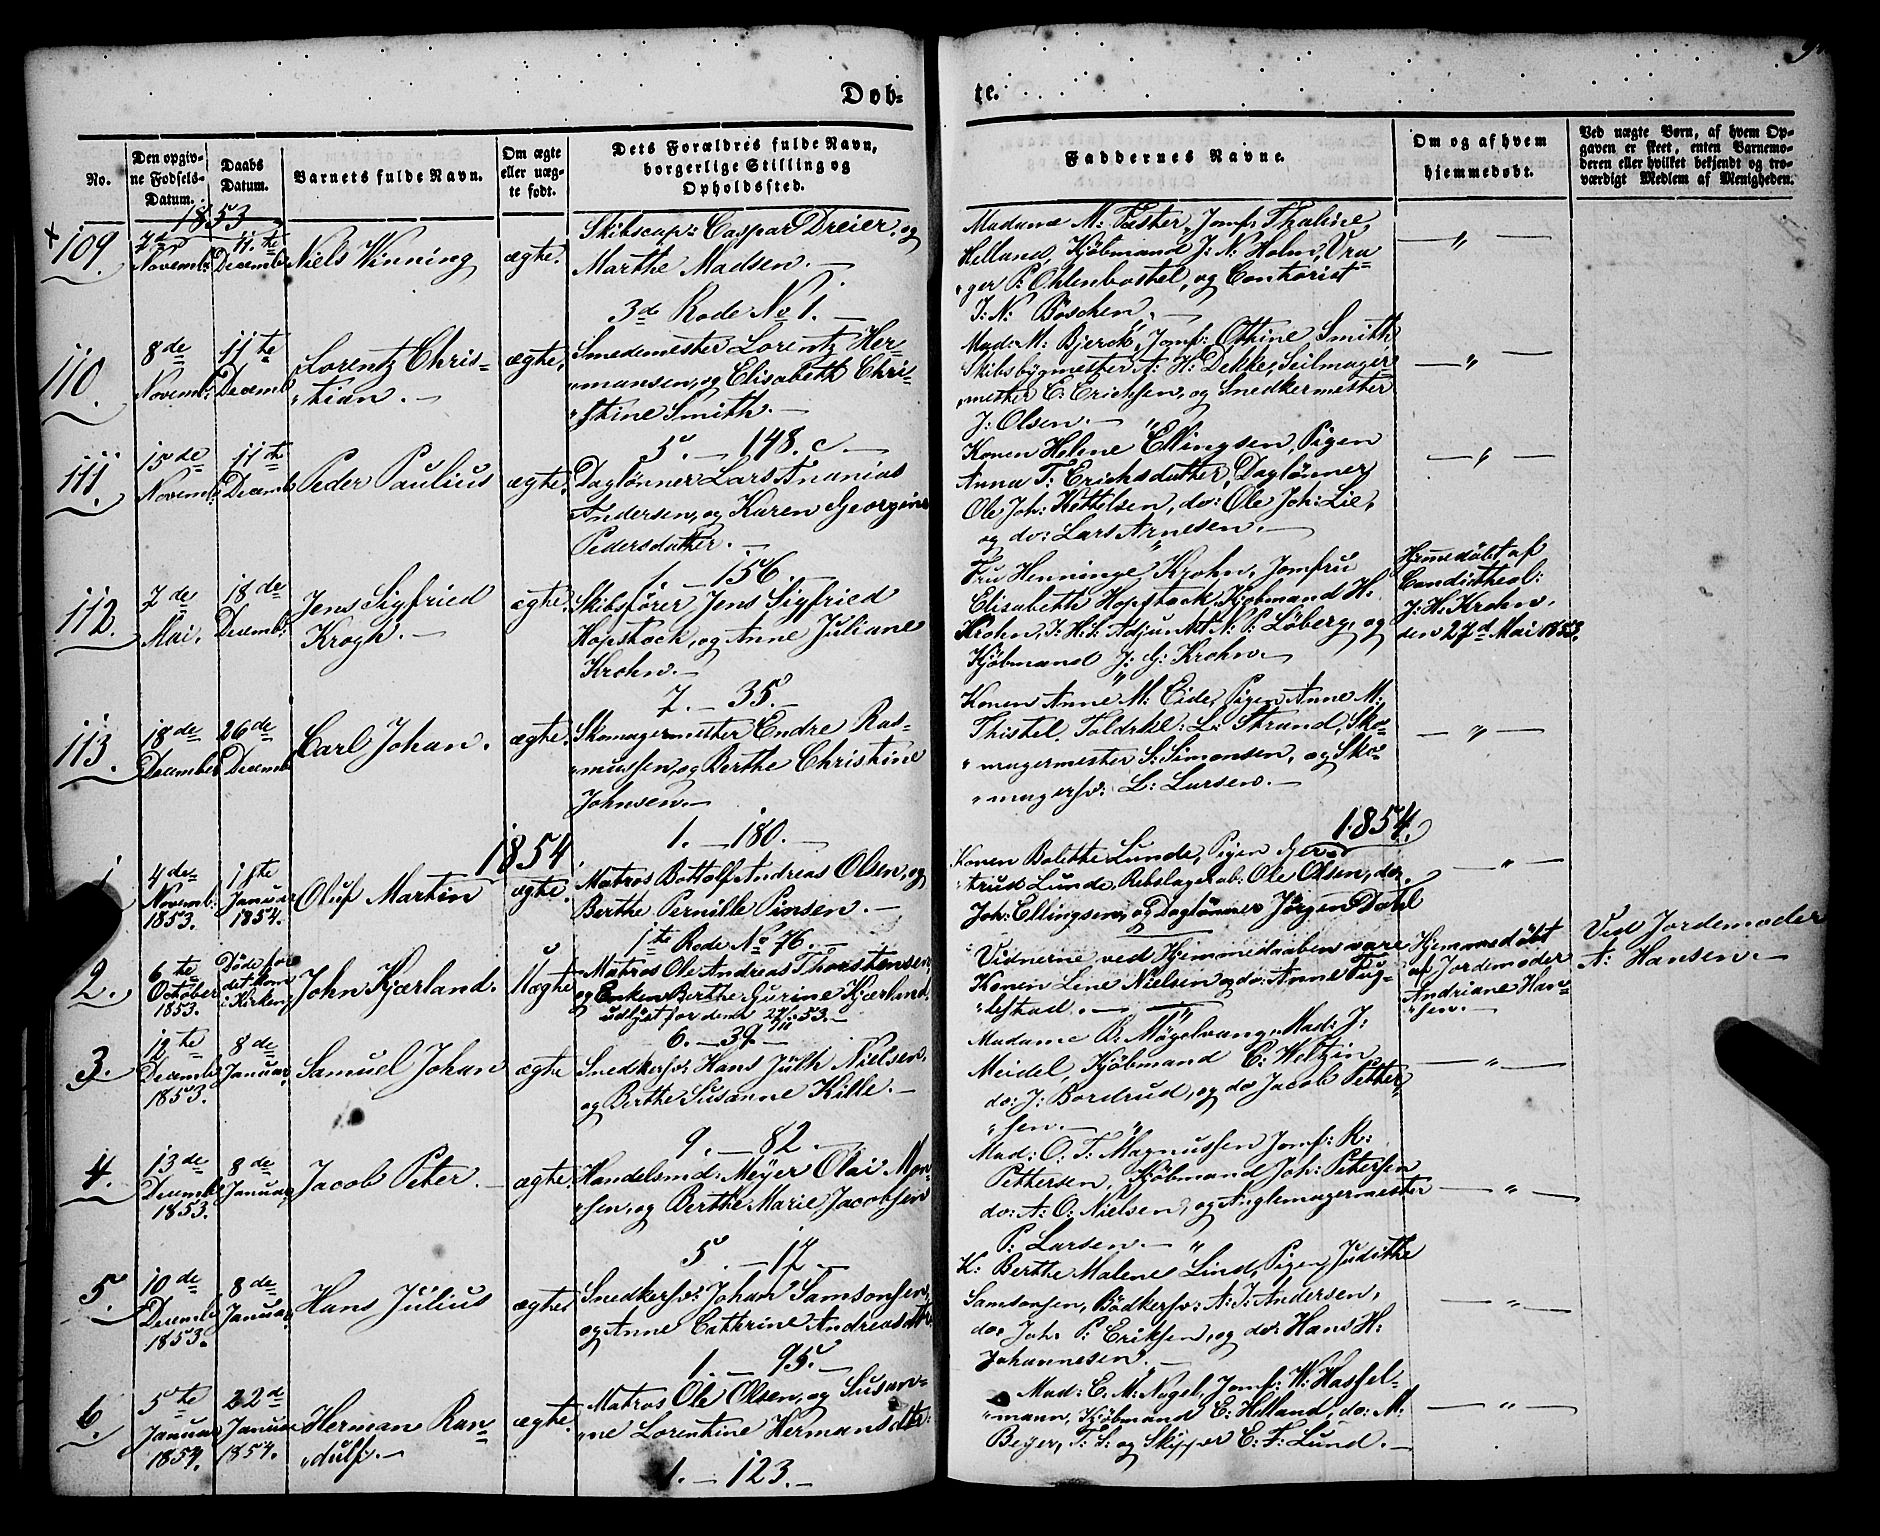 Døb-
te.
No.
Den opgivne Fødsels-Datum.
Daabs Datum.
Barnets fulde Navn.
Om ægte eller uægte født.
Dets Forældres fulde Navn, borgerlige Stilling og Opholdssted.
Faddernes Navne.
Om og af hvem hjemmedøbt.
Ved uægte Børn, af hvem Opgaven er skeet, enten Barnemoderen eller hvilket bekjendt og troværdigt Medlem af Menigheden.
1853
109.
7de Novemb:
11te Decemb:
Niels Winning
ægte.
Skibscap: Caspar Dreier, og
Marthe Madsen.
3de Rode No 1.
Madame M: Fæster, Jomf: Thaline
Helland, Kjöbmand J: N: Holm, Vra-
ger P: Ohlenbostel, og Contorist
J: N: Böschen.
110.
8de Novemb:
11te Decemb:
Lorentz Chris-
tian.
ægte.
Smedemester Lorentz Her-
mansen, og Elisabeth Chri-
stine Smith.
5. — 148. c.
Mad: M: Bjerck, Jomf: Othine Smith
Skibsbygmester A: H: Dekke, Seilmager-
mester E: Erichsen, og Snedkermester
J: Olsen.
111.
15de Novemb:
11te Decemb:
Peder Paulius
ægte.
Daglönner Lars Ananias
Andersen, og Karen Georgine
Pedersdatter.
1. — 156.
Konen Helene Ellingsen, Pigen
Anna T: Erichsdatter, Daglönner
Ole Joh: Kettelsen, do: Ole Joh: Lie,
og do: Lars Arnesen.
112.
7de Mai.
18de Decemb:
Jens Sigfried
Krogh.
ægte.
Skibsfører Jens Sigfried
Hopstock, og Anne Juliane
Krohn.
7. — 35.
Fru Henninge Krohn, Jomfru
Elisabeth Hopstock, Kjöbmand H:
Krohn, J: H: S: Adjunkt N: P: Löberg, og
Kjöbmand J: G: Krohn.
Hjemedöbt af
Candidtheol:
J: H: Krohn.
den 27d Mai 1853.
113.
18de December
26de Decemb
Carl Johan.
ægte.
Skomagermester Endre Ras-
mussen, og Berthe Christine
Johnsen.
1. — 180.
Konen Anne M: Eide, Pigen Anne M:
Thistel, L: Strand, Sko-
magermester S: Simonsen, og Sko-
magersv: L: Larsen.
1854
1854.
1
4de Novemb: 1853.
1ste Januar 1854.
Oluf Martin
ægte.
Matros Bottolf Andreas Olsen, og
Berthe Pernille Pinsen.
1te Rode No 76.
Konen Bolette Lunde, Pigen Ger-
trud Lunde, Rebslagerab: Ole Olsen, do.
Joh: Ellingsen, og Daglönner Jörgen Dahl
2.
6te October 1853.
Döde for det kom i Kirken;
John Kjærland.
Uægte
Matros Ole Andreas Thorstensen,
og Enken Berthe Gurine Kjærland.
udlyst for dem 27/11 53.
6. — 39
Vidnerne ved Hjemmedaaben vare
Konen Lene Nielsen og do: Anne Tug-
destad.
Hjemmedöbt
af Jordemoder
Andriane Han-
sen.
Ved Jordemoder
A: Hansen.
3.
12te Decemb 1853.
8de Januar,
Samuel Johan
ægte
Snedkersv: Hans Jüth Nielsen.
og Berthe Susanne Kille.
9. — 82.
Madame B: Mögelvang, Mad: J:
Meidel, Kjöbmand C: Weltzin,
do: J: Bordrud, og do Jacob Petter-
sen.
4.
13de Decemb 1853.
8de Januar,
Jacob Peter.
ægte.
Handelsmd: Meyer Olai Mon-
sen, og Berthe Marie Jacobsen
5. — 17.
Mad: O: T: Magnussen, Jomf: R:
Pettersen, Kjöbmand Joh: Petersen
do: A: O: Nielsen, og Auglemagermester
P: Larsen.
5.
10de Decemb 1853.
8de Januar,
Hans Julius
ægte
Snedkersv: Johan Samsonsen,
og Anne Cathrine Andreasdtr.
1. — 95.
K: Berthe Malene Lind, Pigen Judithe
Samsonsen, Bödkersv: A: J: Andersen,
do: Joh. P: Eriksen, og do: Hans H:
Johannesen.
6.
5te Januar 1854.
22d Januar 1854.
Herman Ran-
dulf.
ægte.
Matros Ole Olsen, og Susan-
ne Lorentine Hermansdtr.
1. — 123.
Mad: C: M: Nagel, Jomf: W: Hassel-
mann, Kjöbmand E: Helland, do: M:
Beyer, T: S: og Skipper E: F: Lund.